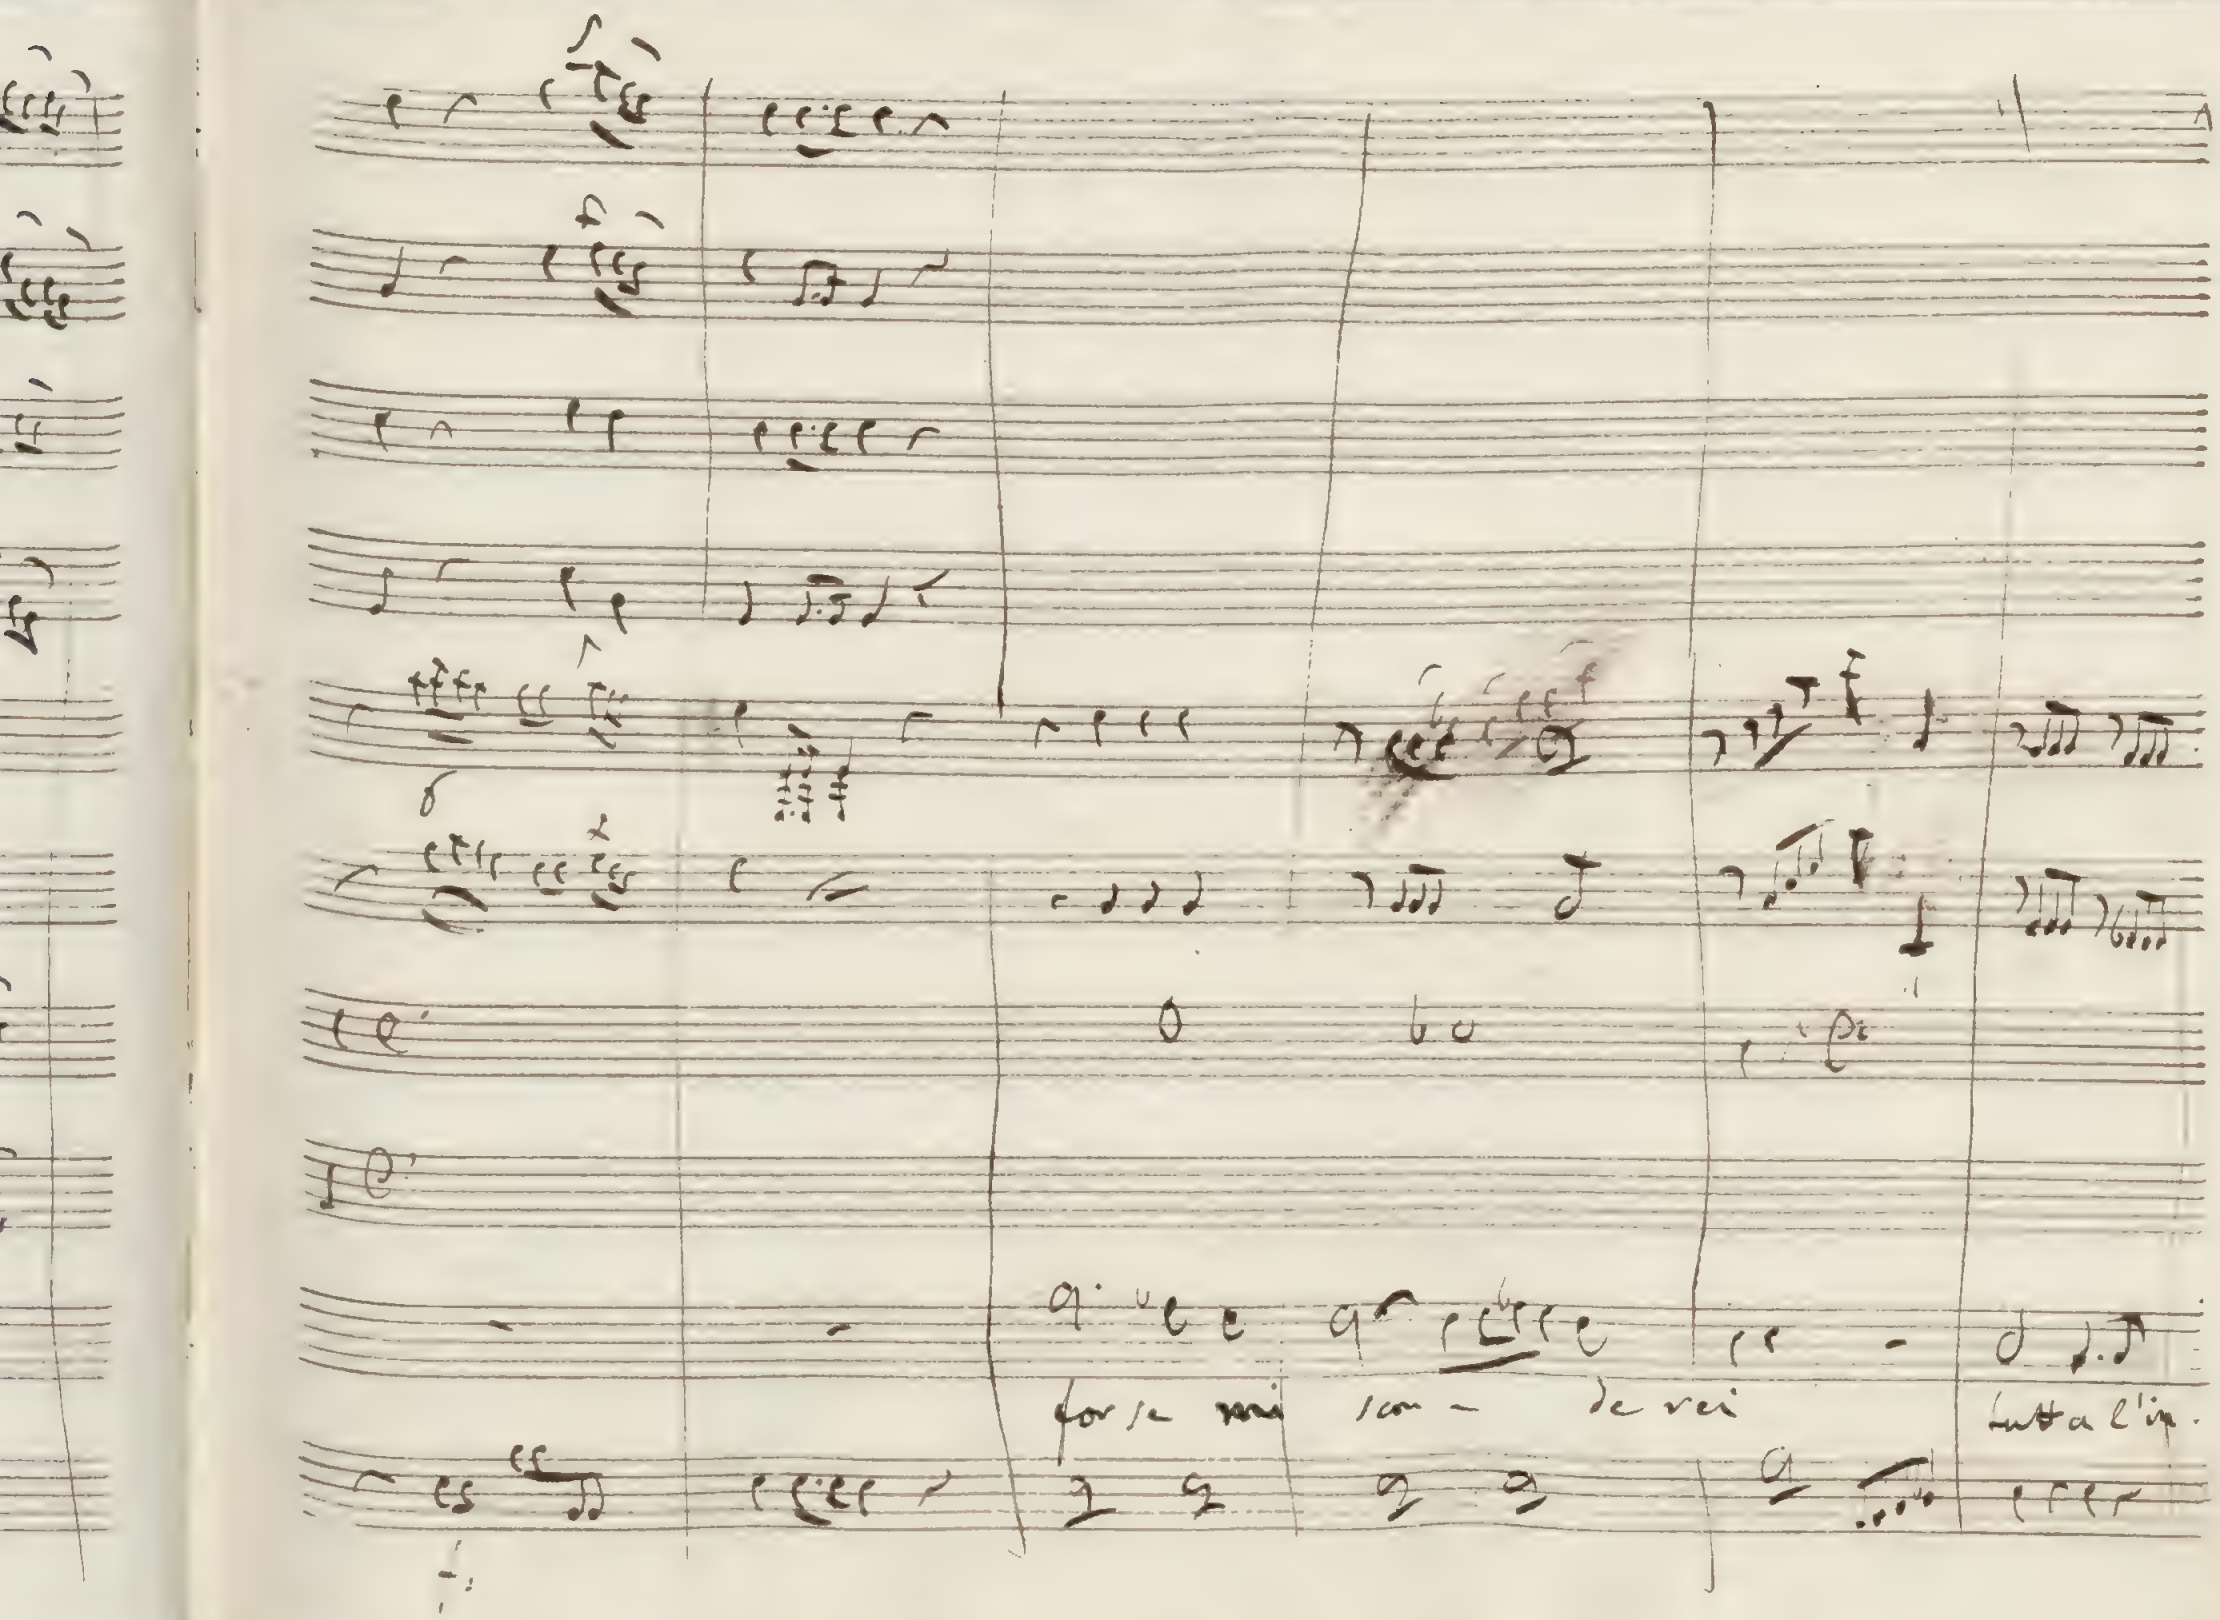 forse mi scon - de rei tutta l'im.